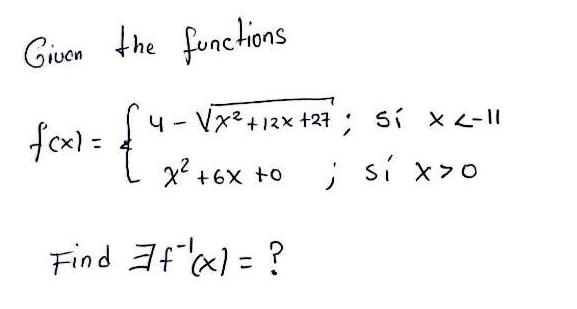 Given the functions
f(x) = { 4 - √x² + 12x + 27 ; sí x < -11
x² + 6x + 0 ; sí x > 0
Find ∃ f⁻¹(x) = ?